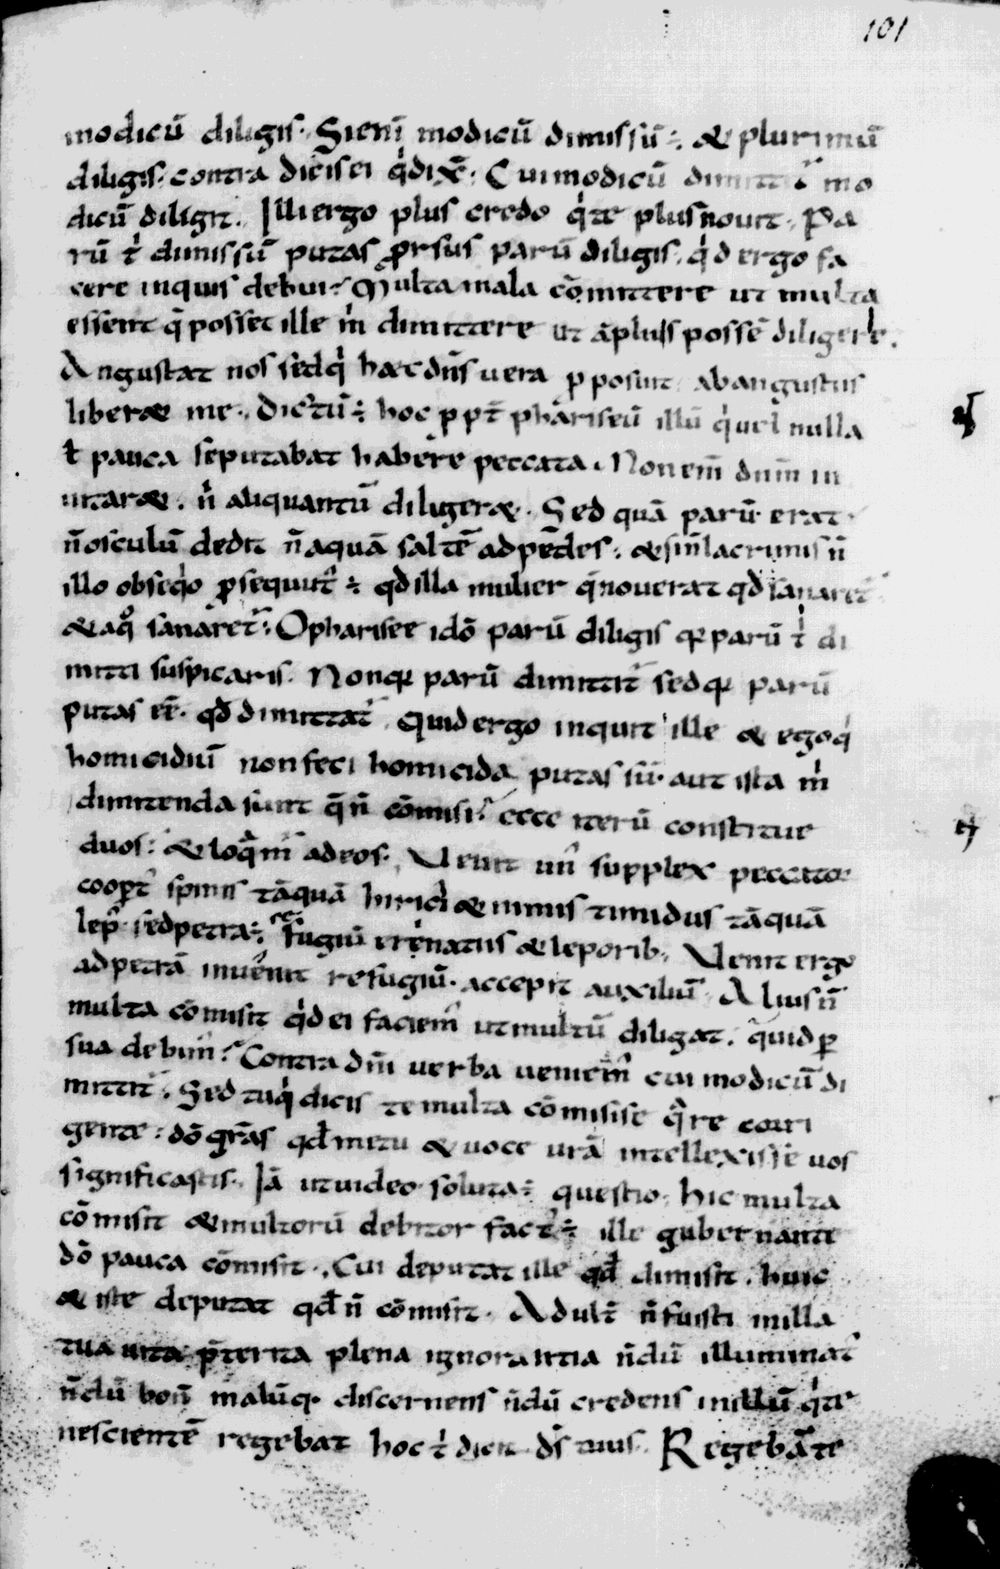 101
modicū diligis. Sienī modicū dimissū ÷. & plurimū
diligis. contra dicis ei qi dix̄. Cui modicū dimittit̄ mo
dicū diligit. Illi ergo plus credo qi te plus nouit. Pa
rū ti dimissū putas prorsus parū diligis. qid ergo fa
cere inquis debui. Multa mala cōmittere ut multa
essent q̄ posset ille mi dimittere ut āplius possē diligere.
Angustat nos sed qi hāc dn̄s uera p posuit ab angustiis
liberet me. Dictū ÷ hoc ppt̄ phariseū illū qi uel nulla
ł pauca se putabat habere peccata. Non em̄ dnm̄ in
uitaret. n̄ aliquantū diligeret. Sed quā parū erat
n̄ osculū dedit n̄ aquā saltē ad pedes. & sin̄ lacrimis n̄
illo obseqio psequitr̄ ÷ qđ illa mulier q̄ nouerat qđ sanaret̄
& a qo sanaret̄. O pharisee idō parū diligis qa parū ti di
mitti suspicaris. Non qa parū dimittit̄ sed qa parū
putas eē. qđ dimittat̄. Quid ergo inquit ille & ego qi
homicidiū non feci homicida putas sū. aut ista mi
dimitenda sunt q̄ n̄ cōmisi. ecce iterū constitue
duos. & loqm̄ ad eos. Uenit un supplex peccator
coopt̄ spinis tāquā hirici & nimis timidus tāquā
lep. sed petra ÷ refugiū erenatiis & leporib. Uenit ergo
ad petrā inuenit refugiū. accepit auxiliū. Alius n̄
multa cōmisit qid ei faciem ut multū diligat. quid p
suadebim. Contra dn̄i uerba ueniem cui modicū di
mittit̄. Sed tu qi dicis te multa cōmisise qre corri
gente. dō gr̄as qđ metu & uoce urā intellexisse uos
significastis. Iā ut uideo soluta ÷ questio. hic multa
cōmisit & multorū debitor fact ÷ ille gubernante
dō pauca cōmisit. Cui deputat ille qđ dimisit. huic
& iste deputat qđ n̄ cōmisit. Adult̄ n̄ fuisti in illa
tua uita p̄terita plena ignorantia n̄dū illuminat
n̄dū bon̄ malūq. discernens n̄dū credens in illū qi te
nescientē regebat hoc ti dicit ds̄ tuus. Regebā te